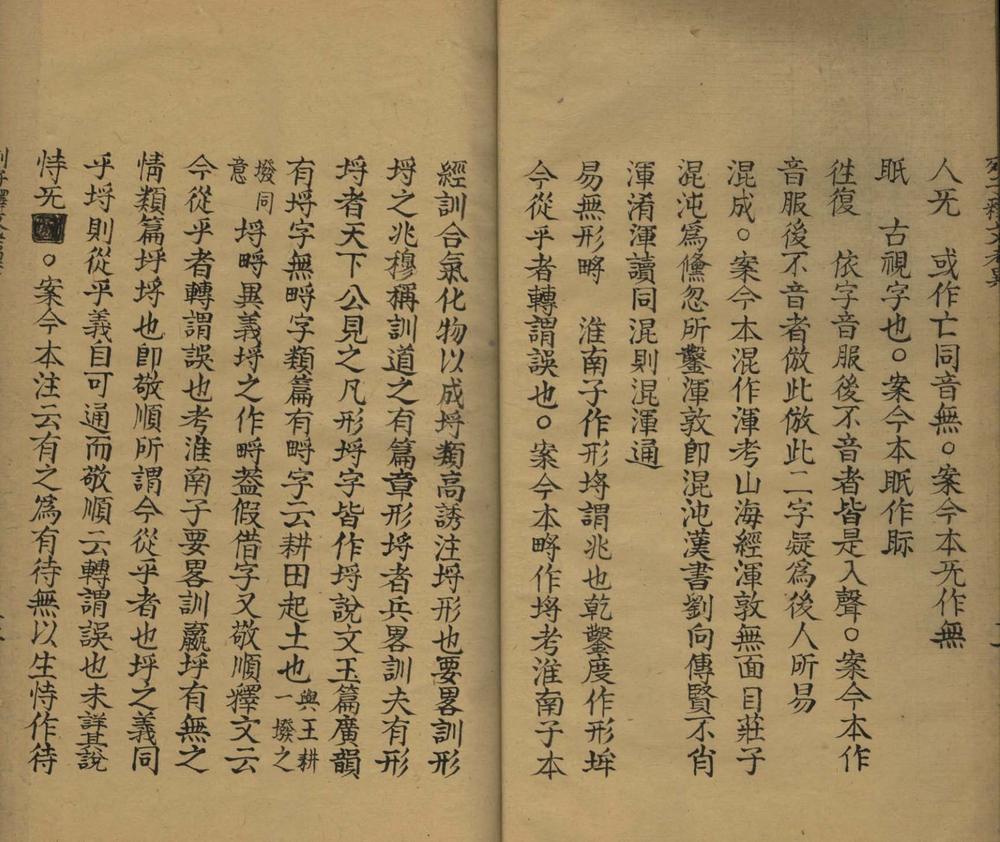 人旡　或作亡同音無。案今本旡作無
眂　古視字也。案今本眂作眎
徃復　依字音服後不音者皆是入聲。案今本作
音服後不音者倣此倣此二字疑爲後人所易
混成。案今本混作渾考山海經渾敦無面目莊子
混沌爲儵忽所鑿渾敦卽混沌漢書劉向傳賢不肖
渾淆渾讀同混則混渾通
易無形㽟　淮南子作形埒謂兆也乾鑿度作形垺
今從乎者轉謂誤也。案今本㽟作埒考淮南子本
經訓合氣化物以成埒類高誘注埒形也要畧訓形
埒之兆穆稱訓道之有篇章形埒者兵畧訓夫有形
埒者天下公見之凡形埒字皆作埒說文玉篇廣韻
有埒字無㽟字類篇有㽟字云耕田起土也與王耕一墢之
墢同意　埒㽟異義埒之作㽟葢假借字又敬順釋文云
今從乎者轉謂誤也考淮南子要畧訓嬴垀有無之
情類篇垀埒也卽敬順所謂今從乎者也垀之義同
乎埒則從乎義自可通而敬順云轉謂誤也未詳其說
恃旡。案今本注云有之爲有待無以生恃作待